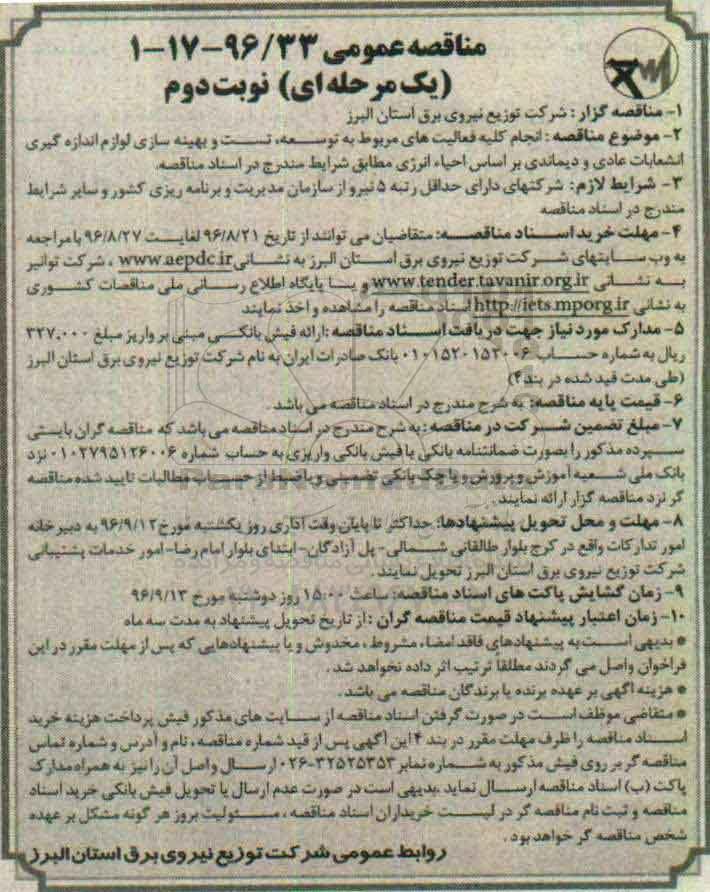 مناقصه عمومی ۹۶/۳۳-۱۷-۱
(یک مرحله ای) نوبت دوم
۱- مناقصه گزار : شرکت توزیع نیروی برق استان البرز
۲- موضوع مناقصه : انجام کلیه فعالیت های مربوط به توسعه، تست و بهینه سازی لوازم اندازه گیری
انشعابات عادی و دیماندی بر اساس احیاء انرژی مطابق شرایط مندرج در اسناد مناقصه.
۳- شرایط لازم: شرکتهای دارای حداقل رتبه ۵ نیرو از سازمان مدیریت و برنامه ریزی کشور و سایر شرایط
مندرج در اسناد مناقصه
۴- مهلت خرید اسناد مناقصه: متقاضیان می توانند از تاریخ ۹۶/۸/۲۱ لغایت ۹۶/۸/۲۷ با مراجعه
به وب سایتهای شرکت توزیع نیروی برق استان البرز به نشانی www.aepdc.ir ، شرکت توانیر
به نشانی www.tender.tavanir.org.ir و یا پایگاه اطلاع رسانی ملی مناقصات کشوری
به نشانی http://iets.mporg.ir اسناد مناقصه را مشاهده و اخذ نمایند
۵- مدارک مورد نیاز جهت دریافت اسناد مناقصه :ارائه فیش بانکی مبنی بر واریز مبلغ ۳۲۷,۰۰۰
ریال به شماره حساب ۰۱۰۱۵۲۰۱۵۲۰۰۶ بانک صادرات ایران به نام شرکت توزیع نیروی برق استان البرز
(طی مدت قید شده در بند ۴)
۶- قیمت پایه مناقصه: به شرح مندرج در اسناد مناقصه می باشد .
۷- مبلغ تضمین شرکت در مناقصه : به شرح مندرج در اسناد مناقصه می باشد که مناقصه گران بایستی
سپرده مذکور را بصورت ضمانتنامه بانکی یا فیش بانکی واریزی به حساب شماره ۰۱۰۲۷۹۵۱۲۶۰۰۶ نزد
بانک ملی شعبه آموزش و پرورش و یا چک بانکی تضمینی و یا ضبط از حساب مطالبات تایید شده مناقصه
گر نزد مناقصه گزار ارائه نمایند .
۸- مهلت و محل تحویل پیشنهادها: حداکثر تا پایان وقت اداری روز یکشنبه مورخ ۹۶/۹/۱۲ به دبیرخانه
امور تدارکات واقع در کرج بلوار طالقانی شمالی- پل آزادگان- ابتدای بلوار امام رضا- امور خدمات پشتیبانی
شرکت توزیع نیروی برق استان البرز تحویل نمایند .
۹- زمان گشایش پاکت های اسناد مناقصه: ساعت ۱۵:۰۰ روز دوشنبه مورخ ۹۶/۹/۱۳
۱۰- زمان اعتبار پیشنهاد قیمت مناقصه گران : از تاریخ تحویل پیشنهاد به مدت سه ماه
* بدیهی است به پیشنهادهای فاقد امضاء، مشروط ، مخدوش و یا پیشنهادهایی که پس از مهلت مقرر در این
فراخوان واصل می گردند مطلقاً ترتیب اثر داده نخواهد شد .
* هزینه آگهی بر عهده برنده یا برندگان مناقصه می باشد .
* متقاضی موظف است در صورت گرفتن اسناد مناقصه از سایت های مذکور فیش پرداخت هزینه خرید
اسناد مناقصه را ظرف مهلت مقرر در بند ۴ این آگهی پس از قید شماره مناقصه ، نام و آدرس و شماره تماس
مناقصه گر بر روی فیش مذکور به شماره نمابر ۳۲۵۲۵۳۵۳-۰۲۶ ارسال و اصل آن را نیز به همراه مدارک
پاکت (ب) اسناد مناقصه ارسال نماید .بدیهی است در صورت عدم ارسال یا تحویل فیش بانکی خرید اسناد
مناقصه و ثبت نام مناقصه گر در لیست خریداران اسناد مناقصه ، مسئولیت بروز هر گونه مشکل بر عهده
شخص مناقصه گر خواهد بود .
روابط عمومی شرکت توزیع نیروی برق استان البرز